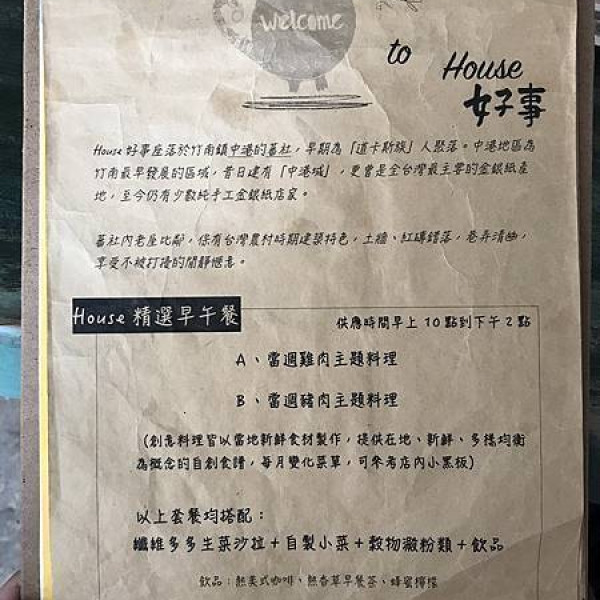 welcome
to House
好事
House 好事座落於竹南鎮中港的蕃社，早期為「道卡斯族」人聚落。中港地區為
竹南最早發展的區域，昔日建有「中港城」，更曾是全台灣最主要的金銀紙產
地，至今仍有少數純手工金銀紙店家。
蕃社內老屋比鄰，保有台灣農村時期建築特色，土牆、紅磚錯落，巷弄清幽，
享受不被打擾的閒靜愜意。
House 精選早午餐
供應時間早上 10 點到下午 2 點
A、當週雞肉主題料理
B、當週豬肉主題料理
(創意料理皆以當地新鮮食材製作，提供在地、新鮮、多樣均衡
為概念的自創食譜，每月變化菜單，可參考店內小黑板)
以上套餐均搭配：
纖維多多生菜沙拉＋自製小菜＋穀物澱粉類＋飲品
飲品：熱美式咖啡、熱香草早餐茶、蜂蜜檸檬